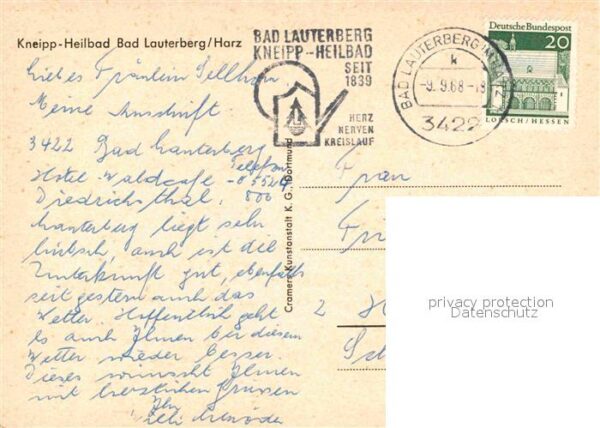 Kneipp-Heilbad Bad Lauterberg/Harz
BAD LAUTERBERG
KNEIPP-HEILBAD
SEIT
1839
HERZ
NERVEN
KREISLAUF
BAD LAUTERBERG IM HARZ
k
-9.9.68-18
3422
Deutsche Bundespost
20
LORSCH/HESSEN
Liebes Fräulein
Meine Anschrift
3422 Bad Lauterberg
Hotel-Waldcafe Telefon
Diedrichsthal.
Lauterberg liegt sehr
hübsch, auch ist die
Unterkunft gut, ebenfalls
seit gestern auch das
Wetter. Hoffentlich geht
es auch Ihnen bei diesem
Wetter wieder besser.
Dieses wünscht Ihnen
mit herzlichen Grüssen
Ihr
Cramers Kunstanstalt K. G., Dortmund
Frau
2 H
privacy protection
Datenschutz